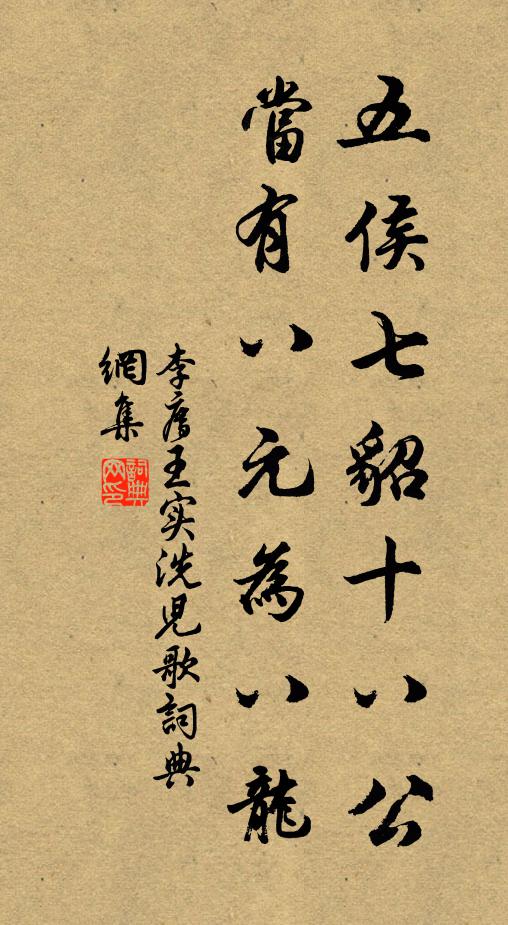 五侯七貂十八公
當有八元為八龍
李廌王实洗児歌詞典
網集
詞典網印